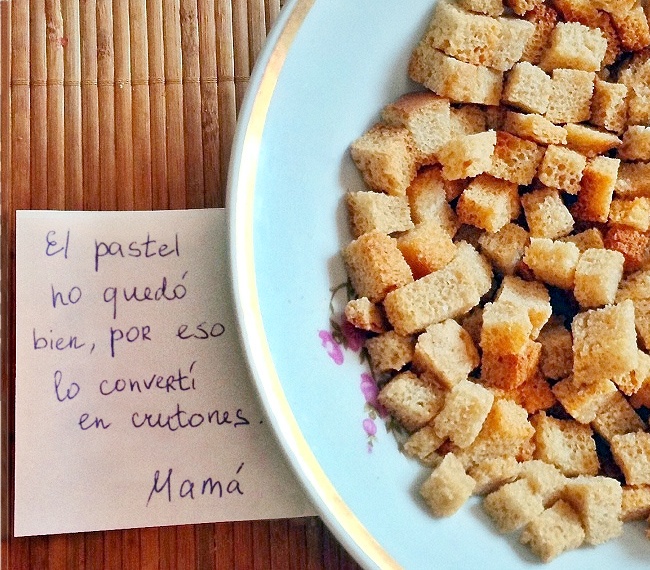 El pastel
no quedó
bien, por eso
lo convertí
en crutones.
Mamá